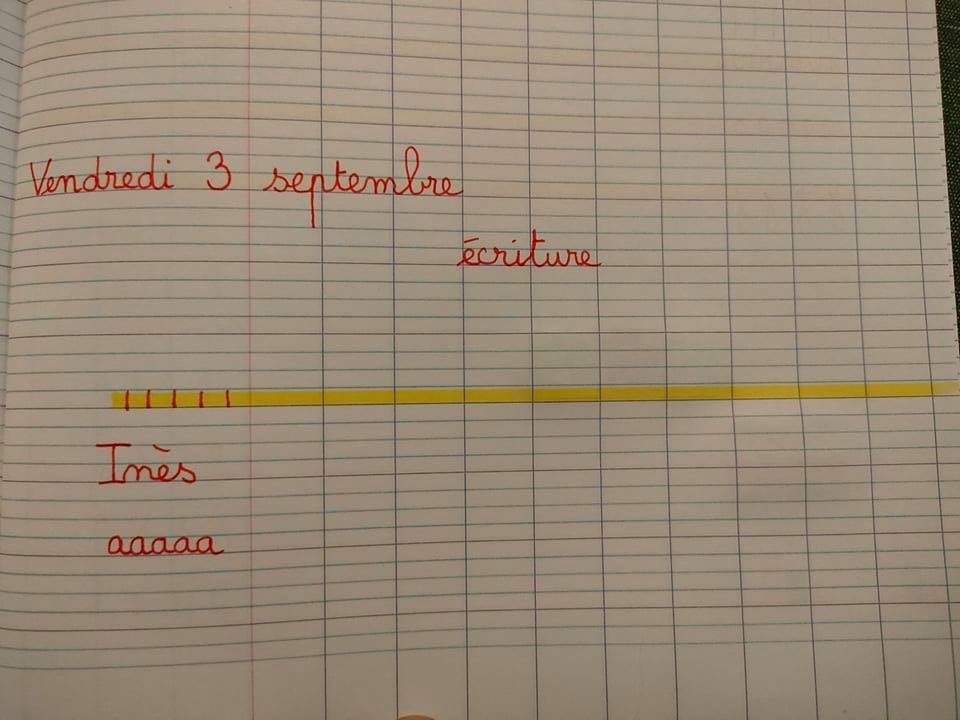 Vendredi 3 septembre
écriture
Inès
aaaaa